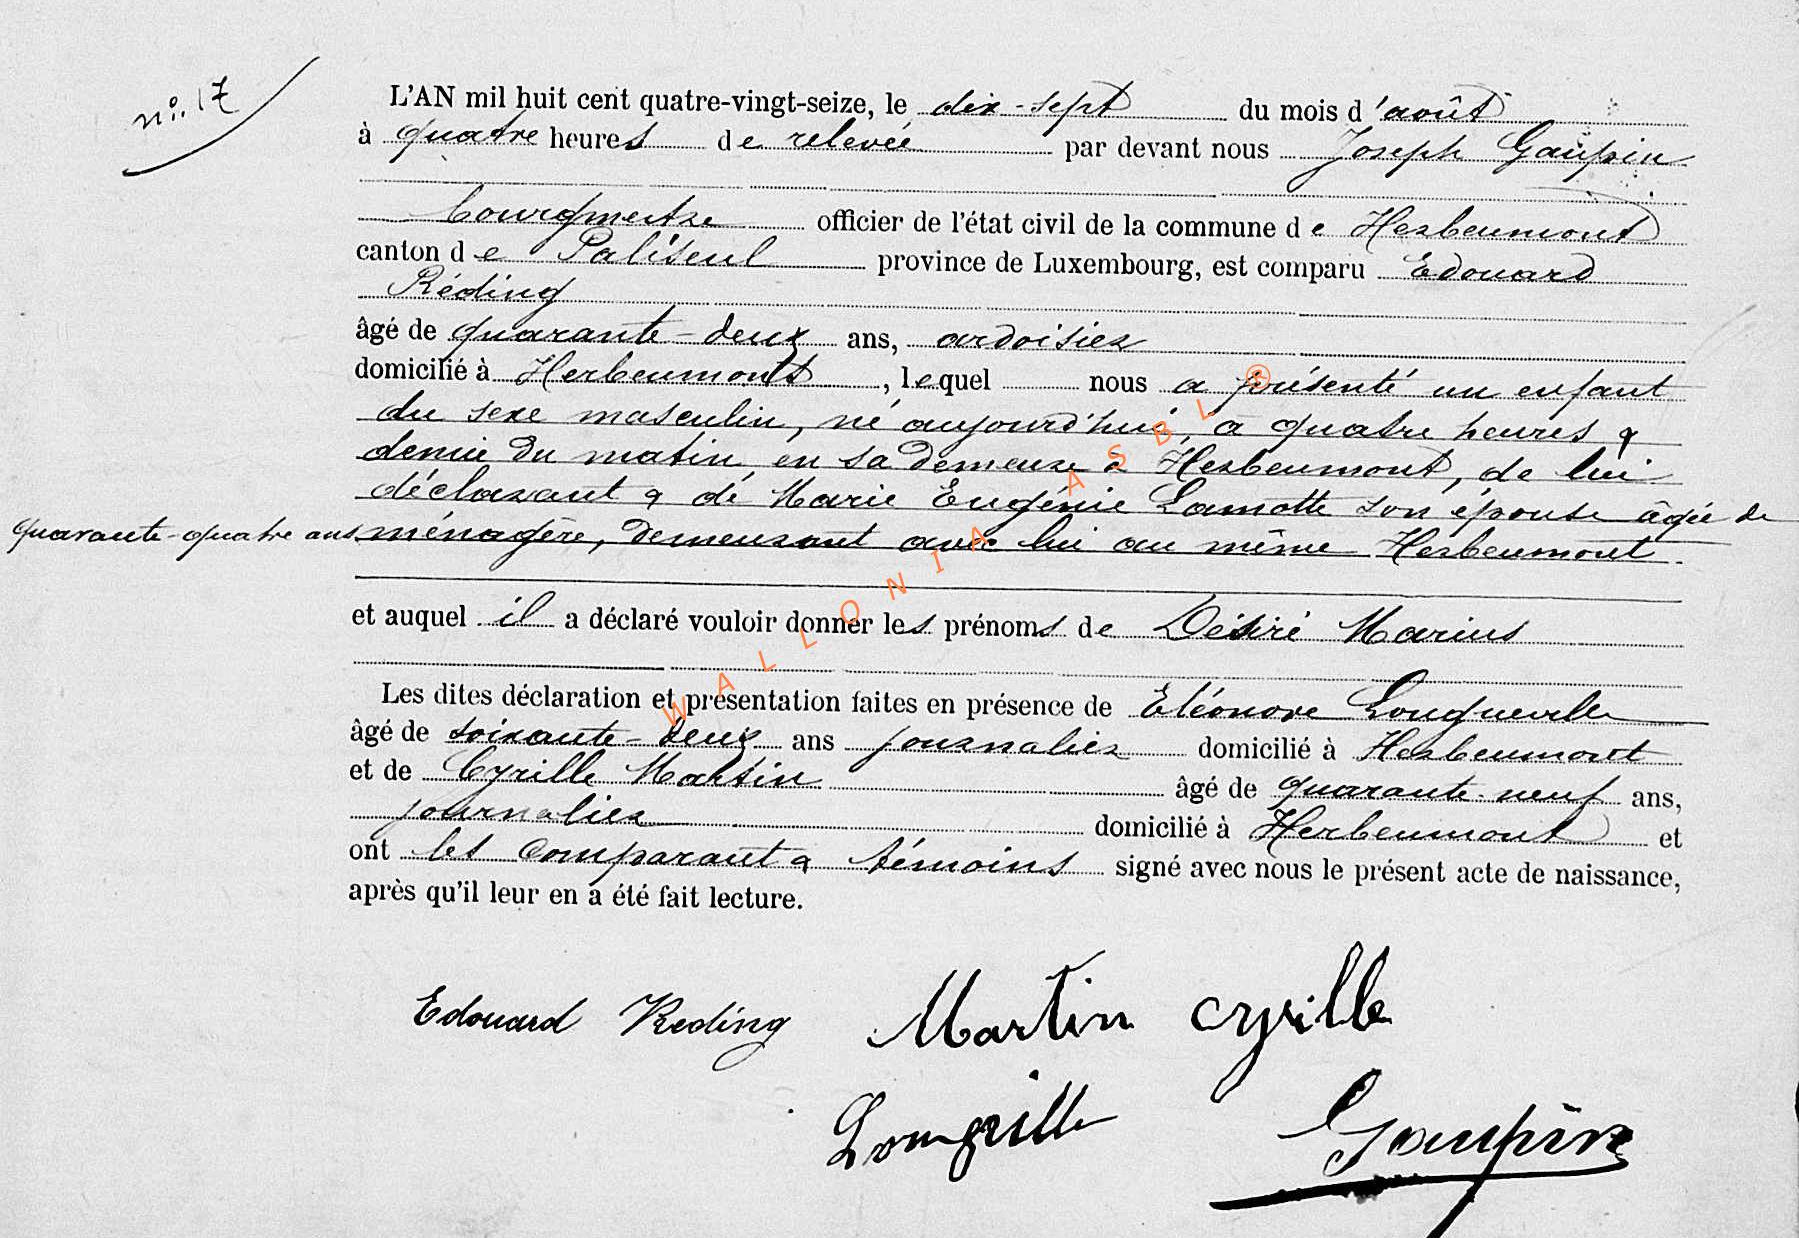 n°: 17
L'AN mil huit cent quatre-vingt-seize, le dix-sept du mois d'août
à quatre heures de relevée par devant nous Joseph Gaupin
bourgmestre officier de l'état civil de la commune de Herbeumont
canton de Paliseul province de Luxembourg, est comparu Edouard
Réding
âgé de quarante-deux ans, ardoisier
domicilié à Herbeumont, lequel nous a présenté un enfant
du sexe masculin, né aujourd'hui, à quatre heures &
demie du matin, en sa demeure à Herbeumont, de lui
déclarant & de Marie Eugénie Lamotte son épouse âgée de
quarante-quatre ans ménagère, demeurant avec lui au même Herbeumont.
et auquel il a déclaré vouloir donner les prénoms de Désiré Marius
Les dites déclaration et présentation faites en présence de Eléonore Longueville
âgé de soixante-deux ans journalier domicilié à Herbeumont
et de Cyrille Martin âgé de quarante-neuf ans,
journalier domicilié à Herbeumont et
ont les comparant & témoins signé avec nous le présent acte de naissance,
après qu'il leur en a été fait lecture.
Edouard Reding Martin cyrille
Gaupin
WALLONIA ASBL ®